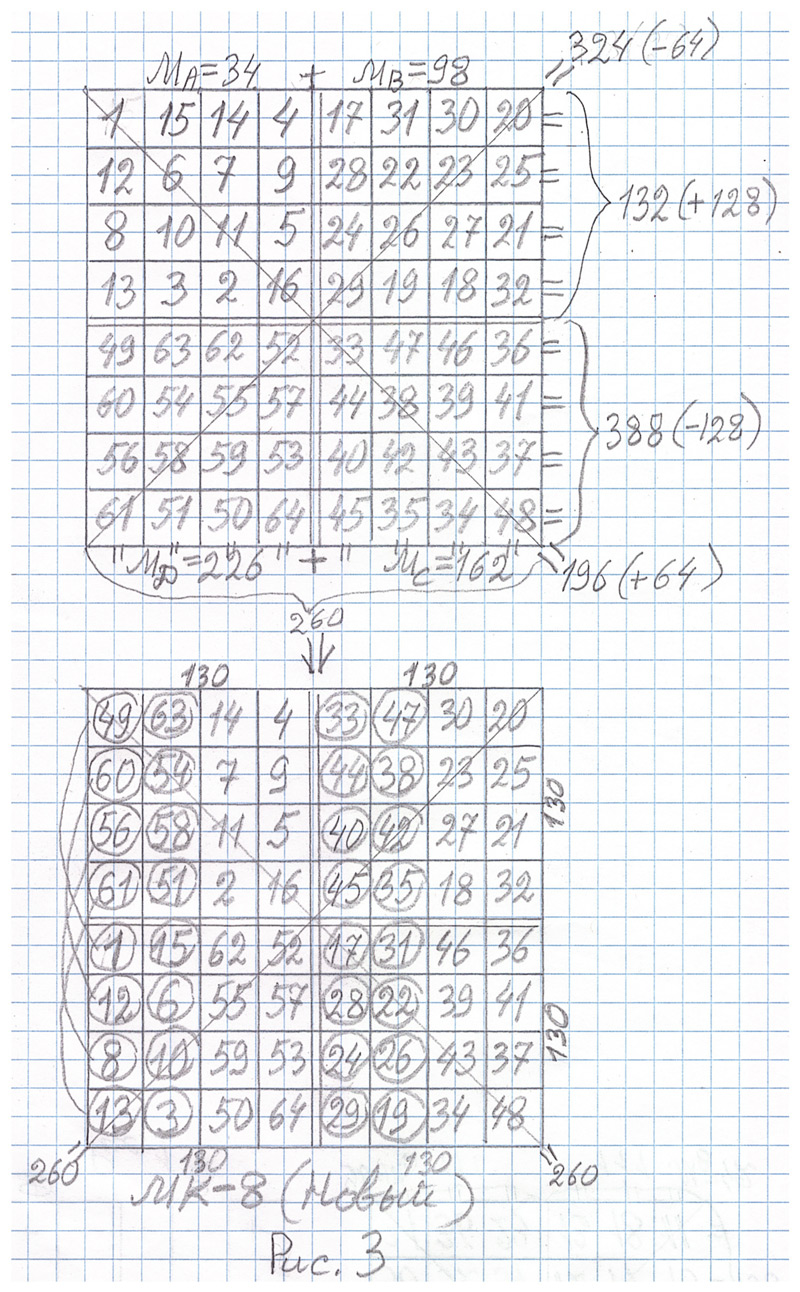 M_A=34 + M_B=98 = 324(-64)
1 15 14 4 17 31 30 20 =
12 6 7 9 28 22 23 25 =
8 10 11 5 24 26 27 21 =
13 3 2 16 29 19 18 32 =
132(+128)
49 63 62 52 33 47 46 36 =
60 54 55 57 44 38 39 41 =
56 58 59 53 40 42 43 37 =
61 51 50 64 45 35 34 48 =
388(-128)
"M_D"=226" + " M_C="162" = 196(+64)
260
130 130
49 63 14 4 33 47 30 20
60 54 7 9 44 38 23 25
56 58 11 5 40 42 27 21
61 51 2 16 45 35 18 32
130
1 15 62 52 17 31 46 36
12 6 55 57 28 22 39 41
8 10 59 53 24 26 43 37
13 3 50 64 29 19 34 48
130
260 130 130 260
МК-8 (Новый)
Рис. 3